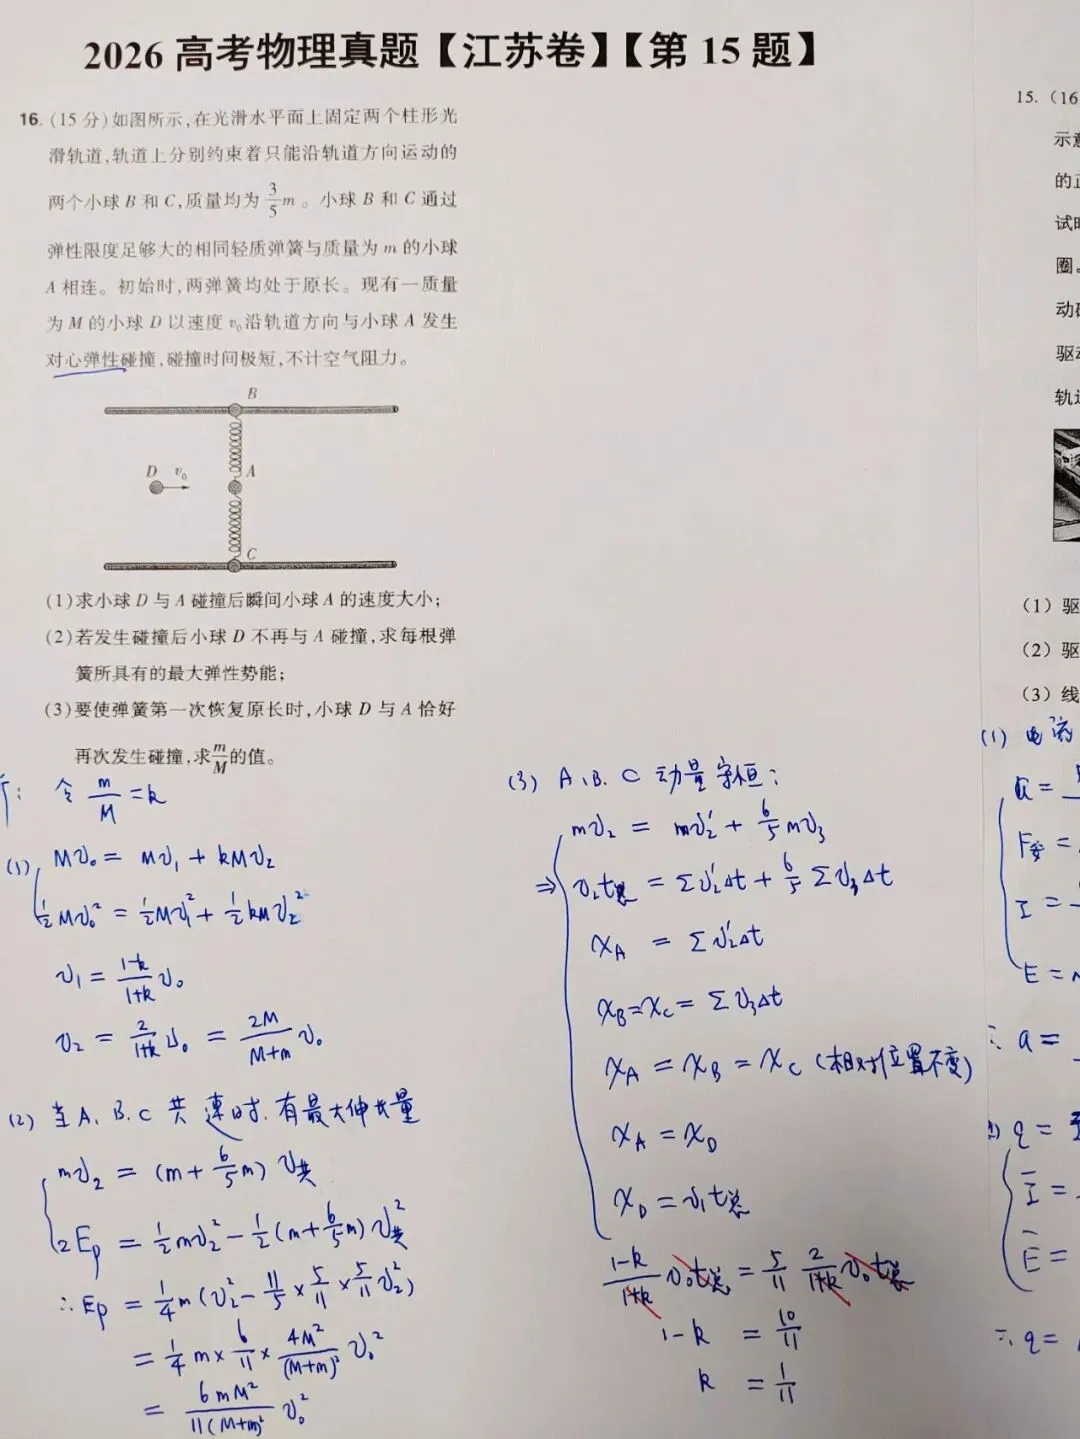 2026 高考物理真题【江苏卷】【第 15 题】
16. (15 分)如图所示,在光滑水平面上固定两个柱形光
滑轨道,轨道上分别约束着只能沿轨道方向运动的
两个小球 B 和 C,质量均为 3/5 m 。小球 B 和 C 通过
弹性限度足够大的相同轻质弹簧与质量为 m 的小球
A 相连。初始时,两弹簧均处于原长。现有一质量
为 M 的小球 D 以速度 v₀沿轨道方向与小球 A 发生
对心弹性碰撞,碰撞时间极短,不计空气阻力。
B
D v₀ A
C
(1)求小球 D 与 A 碰撞后瞬间小球 A 的速度大小;
(2)若发生碰撞后小球 D 不再与 A 碰撞,求每根弹
簧所具有的最大弹性势能;
(3)要使弹簧第一次恢复原长时,小球 D 与 A 恰好
再次发生碰撞,求 m/M 的值。
: 令 m/M = k
(1) Mv₀ = Mv₁ + kMv₂
1/2 Mv₀² = 1/2 Mv₁² + 1/2 kMv₂²
v₁ = (1-k)/(1+k) v₀
v₂ = 2/(1+k) v₀ = 2M/(M+m) v₀
(2) 当 A、B、C 共速时,有最大伸长量
mv₂ = (m + 6/5 m) v共
2Ep = 1/2 mv₂² - 1/2 (m + 6/5 m) v共²
∴ Ep = 1/4 m (v₂² - 11/5 × 5/11 × 5/11 v₂²)
= 1/4 m × 6/11 × 4M²/(M+m)² v₀²
= 6mM²/11(M+m)² v₀²
(3) A、B、C 动量守恒:
mv₂ = mv₂' + 6/5 mv₃
⇒ v₂t总 = Σv₂'Δt + 6/5 Σv₃Δt
x_A = Σv₂'Δt
x_B = x_C = Σv₃Δt
x_A = x_B = x_C (相对位置不变)
x_A = x_D
x_D = v₁t总
(1-k)/(1+k) v₀t总 = 5/11 2/(1+k) v₀t总
1-k = 10/11
k = 1/11
15. (16
示意
的正
试时
圈。
动磁
驱动
轨道
(1) 驱
(2) 驱
(3) 线
(1) 电流
a =
F安 =
I =
E =
∴ a =
q =
I =
E =
∴ q =